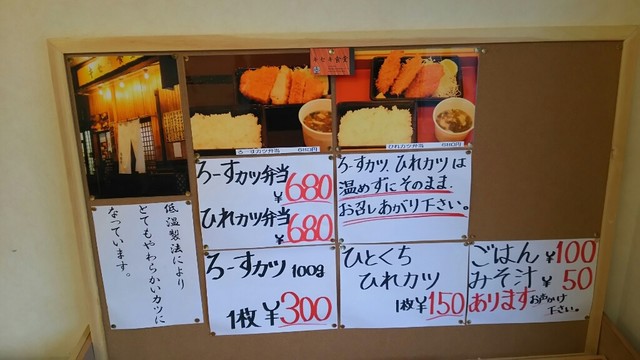 ろーすカツ弁当 680円
ひれカツ弁当 680円
ろーすカツ弁当
¥680
ひれカツ弁当
¥680
ろーすカツ、ひれカツは
温めずにそのまま
お召しあがり下さい。
低温製法により
とてもやわらかいカツに
なっています。
ろーすカツ 100g
1枚¥300
ひとくち
ひれカツ
1枚¥150
ごはん ¥100
みそ汁 ¥50
あります お声かけ
下さい。